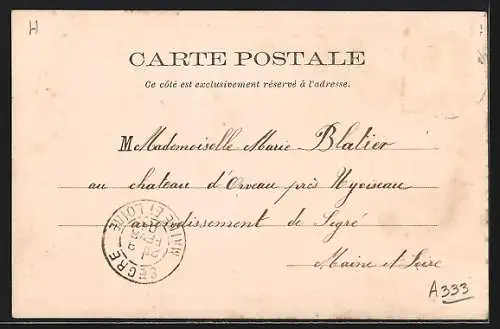 H
CARTE POSTALE
Ce côté est exclusivement réservé à l'adresse.
M Mademoiselle Marie Blatier
au chateau d'Orveau près Nyoiseau
arrondissement de Segré
Maine et Loire
SEGRÉ
MAINE ET LOIRE
A333